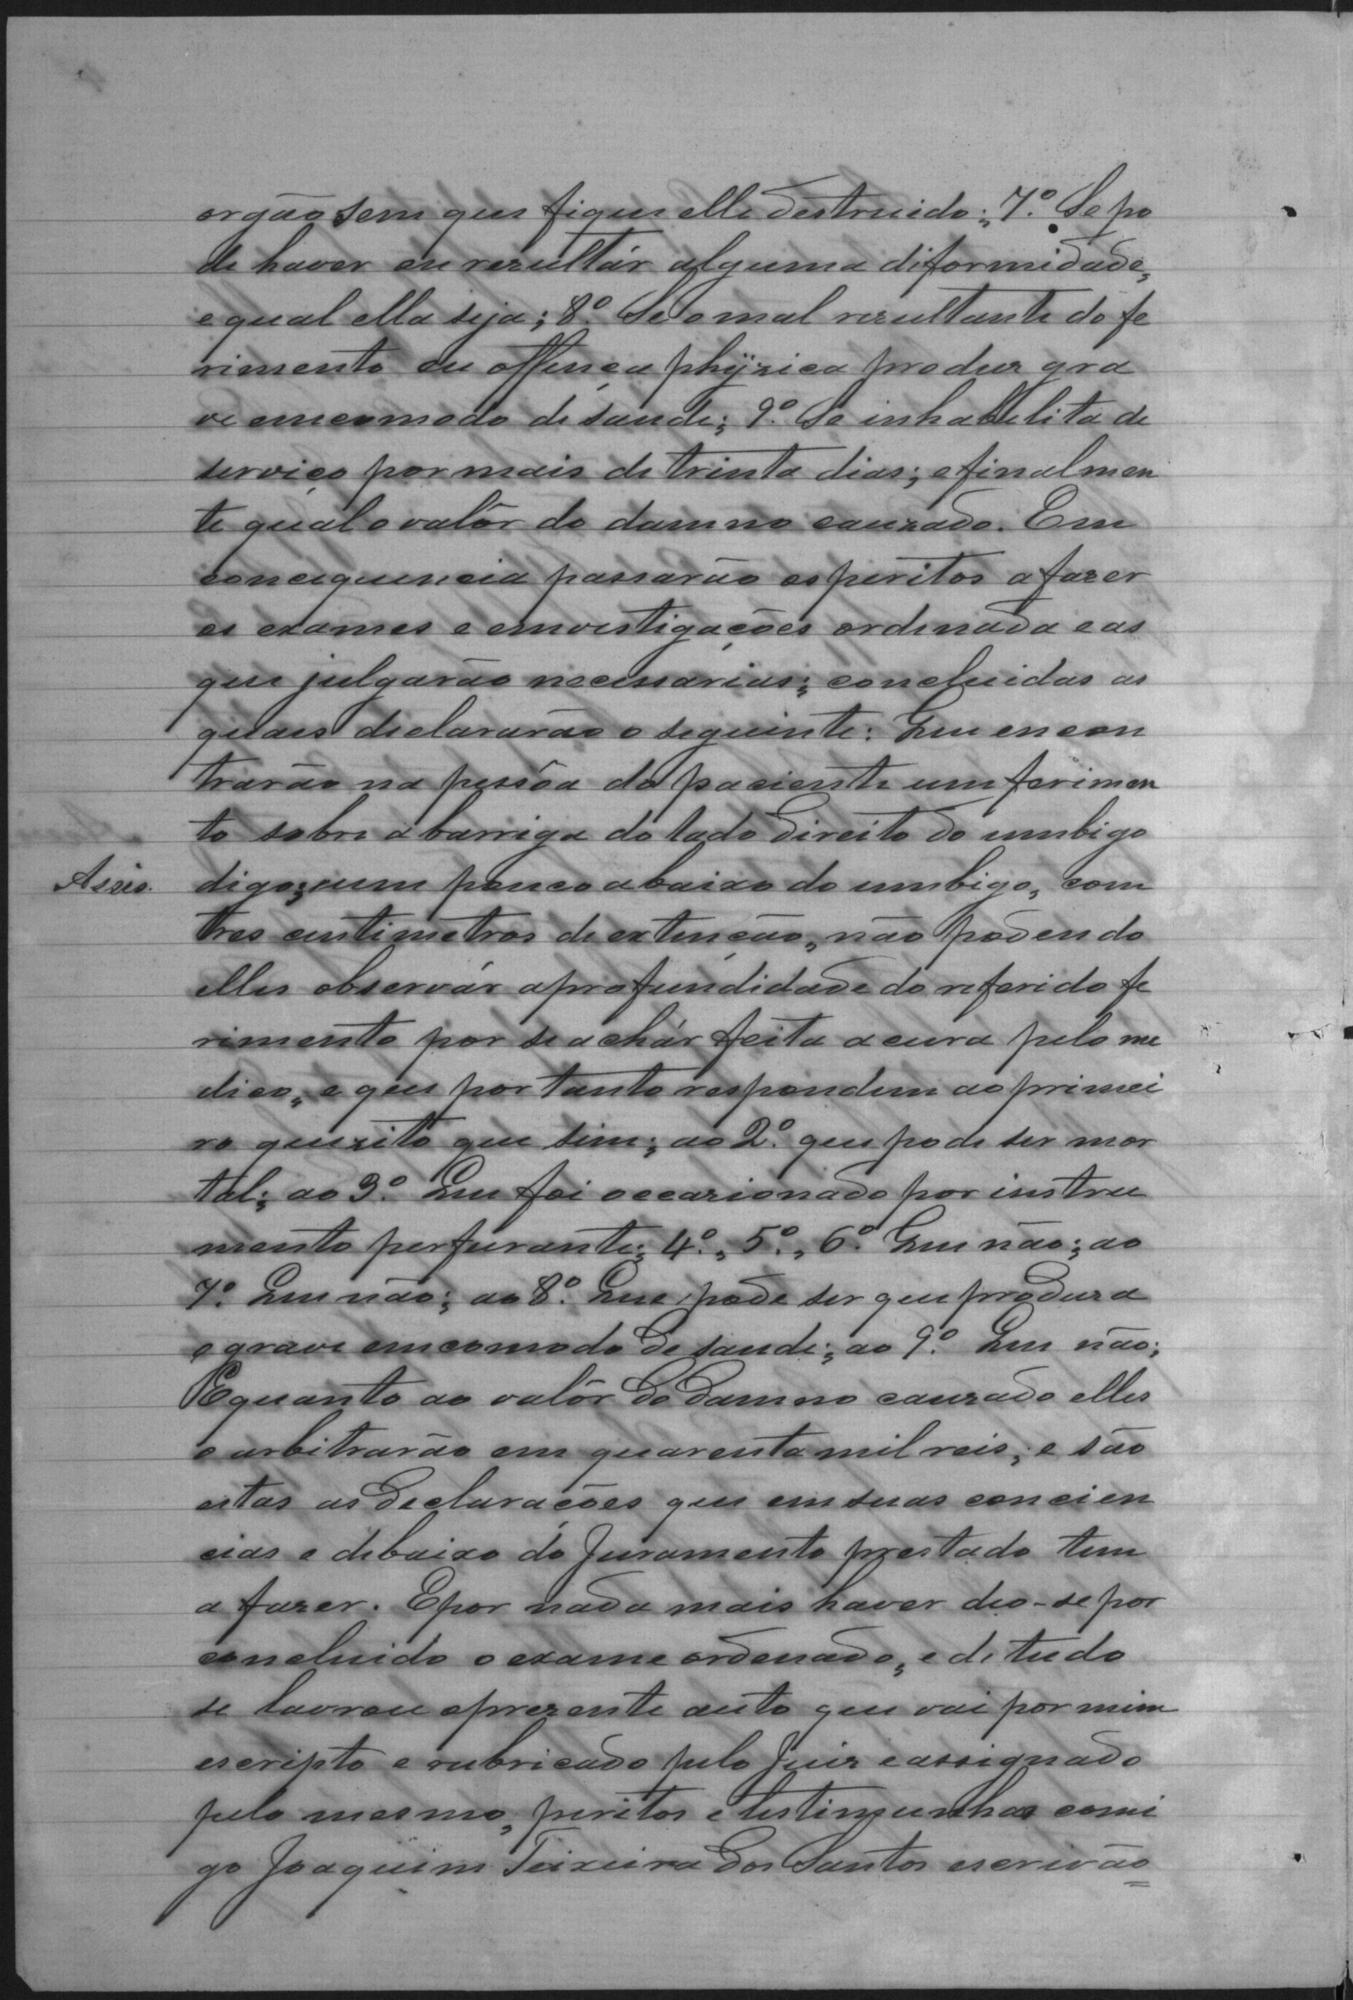 orgão sem que fique elle destruido; 7º. Se po
de haver ou rezultár alguma diformidade,
e qual ella seja; 8º. Se o mal rezultante do fe
rimento ou offença phÿzica produz gra
ve emcomodo de saude; 9º. Se inhabelita de
serviço por mais de trinta dias; e finalmen
te qual o valôr do damno cauzado. Em
concequencia passarão os peritos a fazer
os exames e emvestigações ordenada e as
que julgarão necessarias; concluidas as
quaes declararão o seguinte: Que encon
trarão na pessôa do paciente um ferimen
to sobre a barriga do lado direito do umbigo
digo, um pouco abaixo do umbigo, com
tres centimetros de extenção, não podendo
elles observár a profundidade do referido fe
rimento por se achár feita a cura pelo me
dico, e que por tanto respondem ao primei
ro quezito que sim; ao 2º. que pode ser mor
tal; ao 3º. Que foi occazionado por instru
mento perfurante; 4º., 5º., 6º. Que não; ao
7º. Que não; ao 8º. Que pode ser que produza
o grave emcomodo de saude; ao 9º. Que não;
E quanto ao valôr do damno cauzado elles
o arbitrarão em quarenta mil reis; e são
estas as declarações que em suas concien
cias e debaixo do Juramento prestado tem
a fazer. E por nada mais haver deo-se por
concluido o exame ordenado, e de tudo
se lavrou o prezente auto que vai por mim
escripto e rubricado pelo Juiz e assignado
pelo mesmo, peritos e testimunhas comi
go Joaquim Teixeira dos Santos escrivão